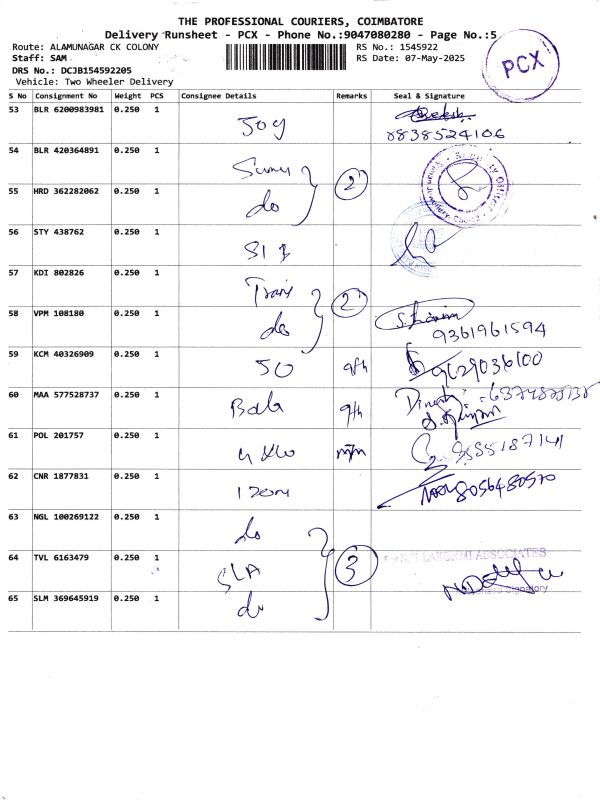 THE PROFESSIONAL COURIERS, COIMBATORE
Delivery Runsheet - PCX - Phone No.:9047080280 - Page No.:5
Route: ALAMUNAGAR CK COLONY RS No.: 1545922
Staff: SAM RS Date: 07-May-2025
DRS No.: DCJB154592205
Vehicle: Two Wheeler Delivery
PCX
S No Consignment No Weight PCS Consignee Details Remarks Seal & Signature
53 BLR 6200983981 0.250 1 Joy
8838524106
54 BLR 420364891 0.250 1 2
55 HRD 362282062 0.250 1 do
56 STY 438762 0.250 1
57 KDI 802826 0.250 1 2
58 VPM 108180 0.250 1 do
9361961594
59 KCM 40326909 0.250 1 50 9629036100
60 MAA 577528737 0.250 1
61 POL 201757 0.250 1
62 CNR 1877831 0.250 1 8056480570
63 NGL 100269122 0.250 1 do
64 TVL 6163479 0.250 1 SLA 3 LAKSHMI ASSOCIATES
65 SLM 369645919 0.250 1 do Signatory